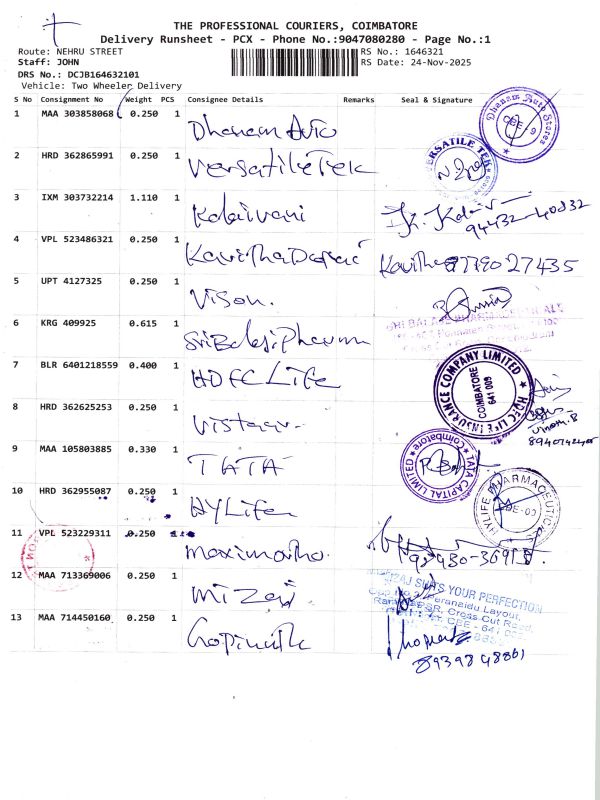 THE PROFESSIONAL COURIERS, COIMBATORE
Delivery Runsheet - PCX - Phone No.:9047080280 - Page No.:1
Route: NEHRU STREET
RS No.: 1646321
Staff: JOHN
RS Date: 24-Nov-2025
DRS No.: DCJB164632101
Vehicle: Two Wheeler Delivery
S No Consignment No Weight PCS Consignee Details Remarks Seal & Signature
1 MAA 303858068 0.250 1 Dhanam Auto
Dhanam Auto Stores
CBE-9
2 HRD 362865991 0.250 1 VersatileTek
VERSATILE TEK
3 IXM 303732214 1.110 1 Kalaivani
4 VPL 523486321 0.250 1 Kavitha
5 UPT 4127325 0.250 1 Vison.
6 KRG 409925 0.615 1 Sri Balaji Pharma
7 BLR 6401218559 0.400 1 HDFC Life
HDFC LIFE INSURANCE COMPANY LIMITED
COIMBATORE
641 009
8 HRD 362625253 0.250 1 Vistaar.
9 MAA 105803885 0.330 1 TATA
TATA CAPITAL LIMITED
Coimbatore
10 HRD 362955087 0.250 1 HYLife
HYLIFE PHARMACEUTICALS
11 VPL 523229311 0.250
12 MAA 713369006 0.250 1
SUITS YOUR PERFECTION
Layout,
Cross Cut Road,
13 MAA 714450160 0.250 1 Gopinath